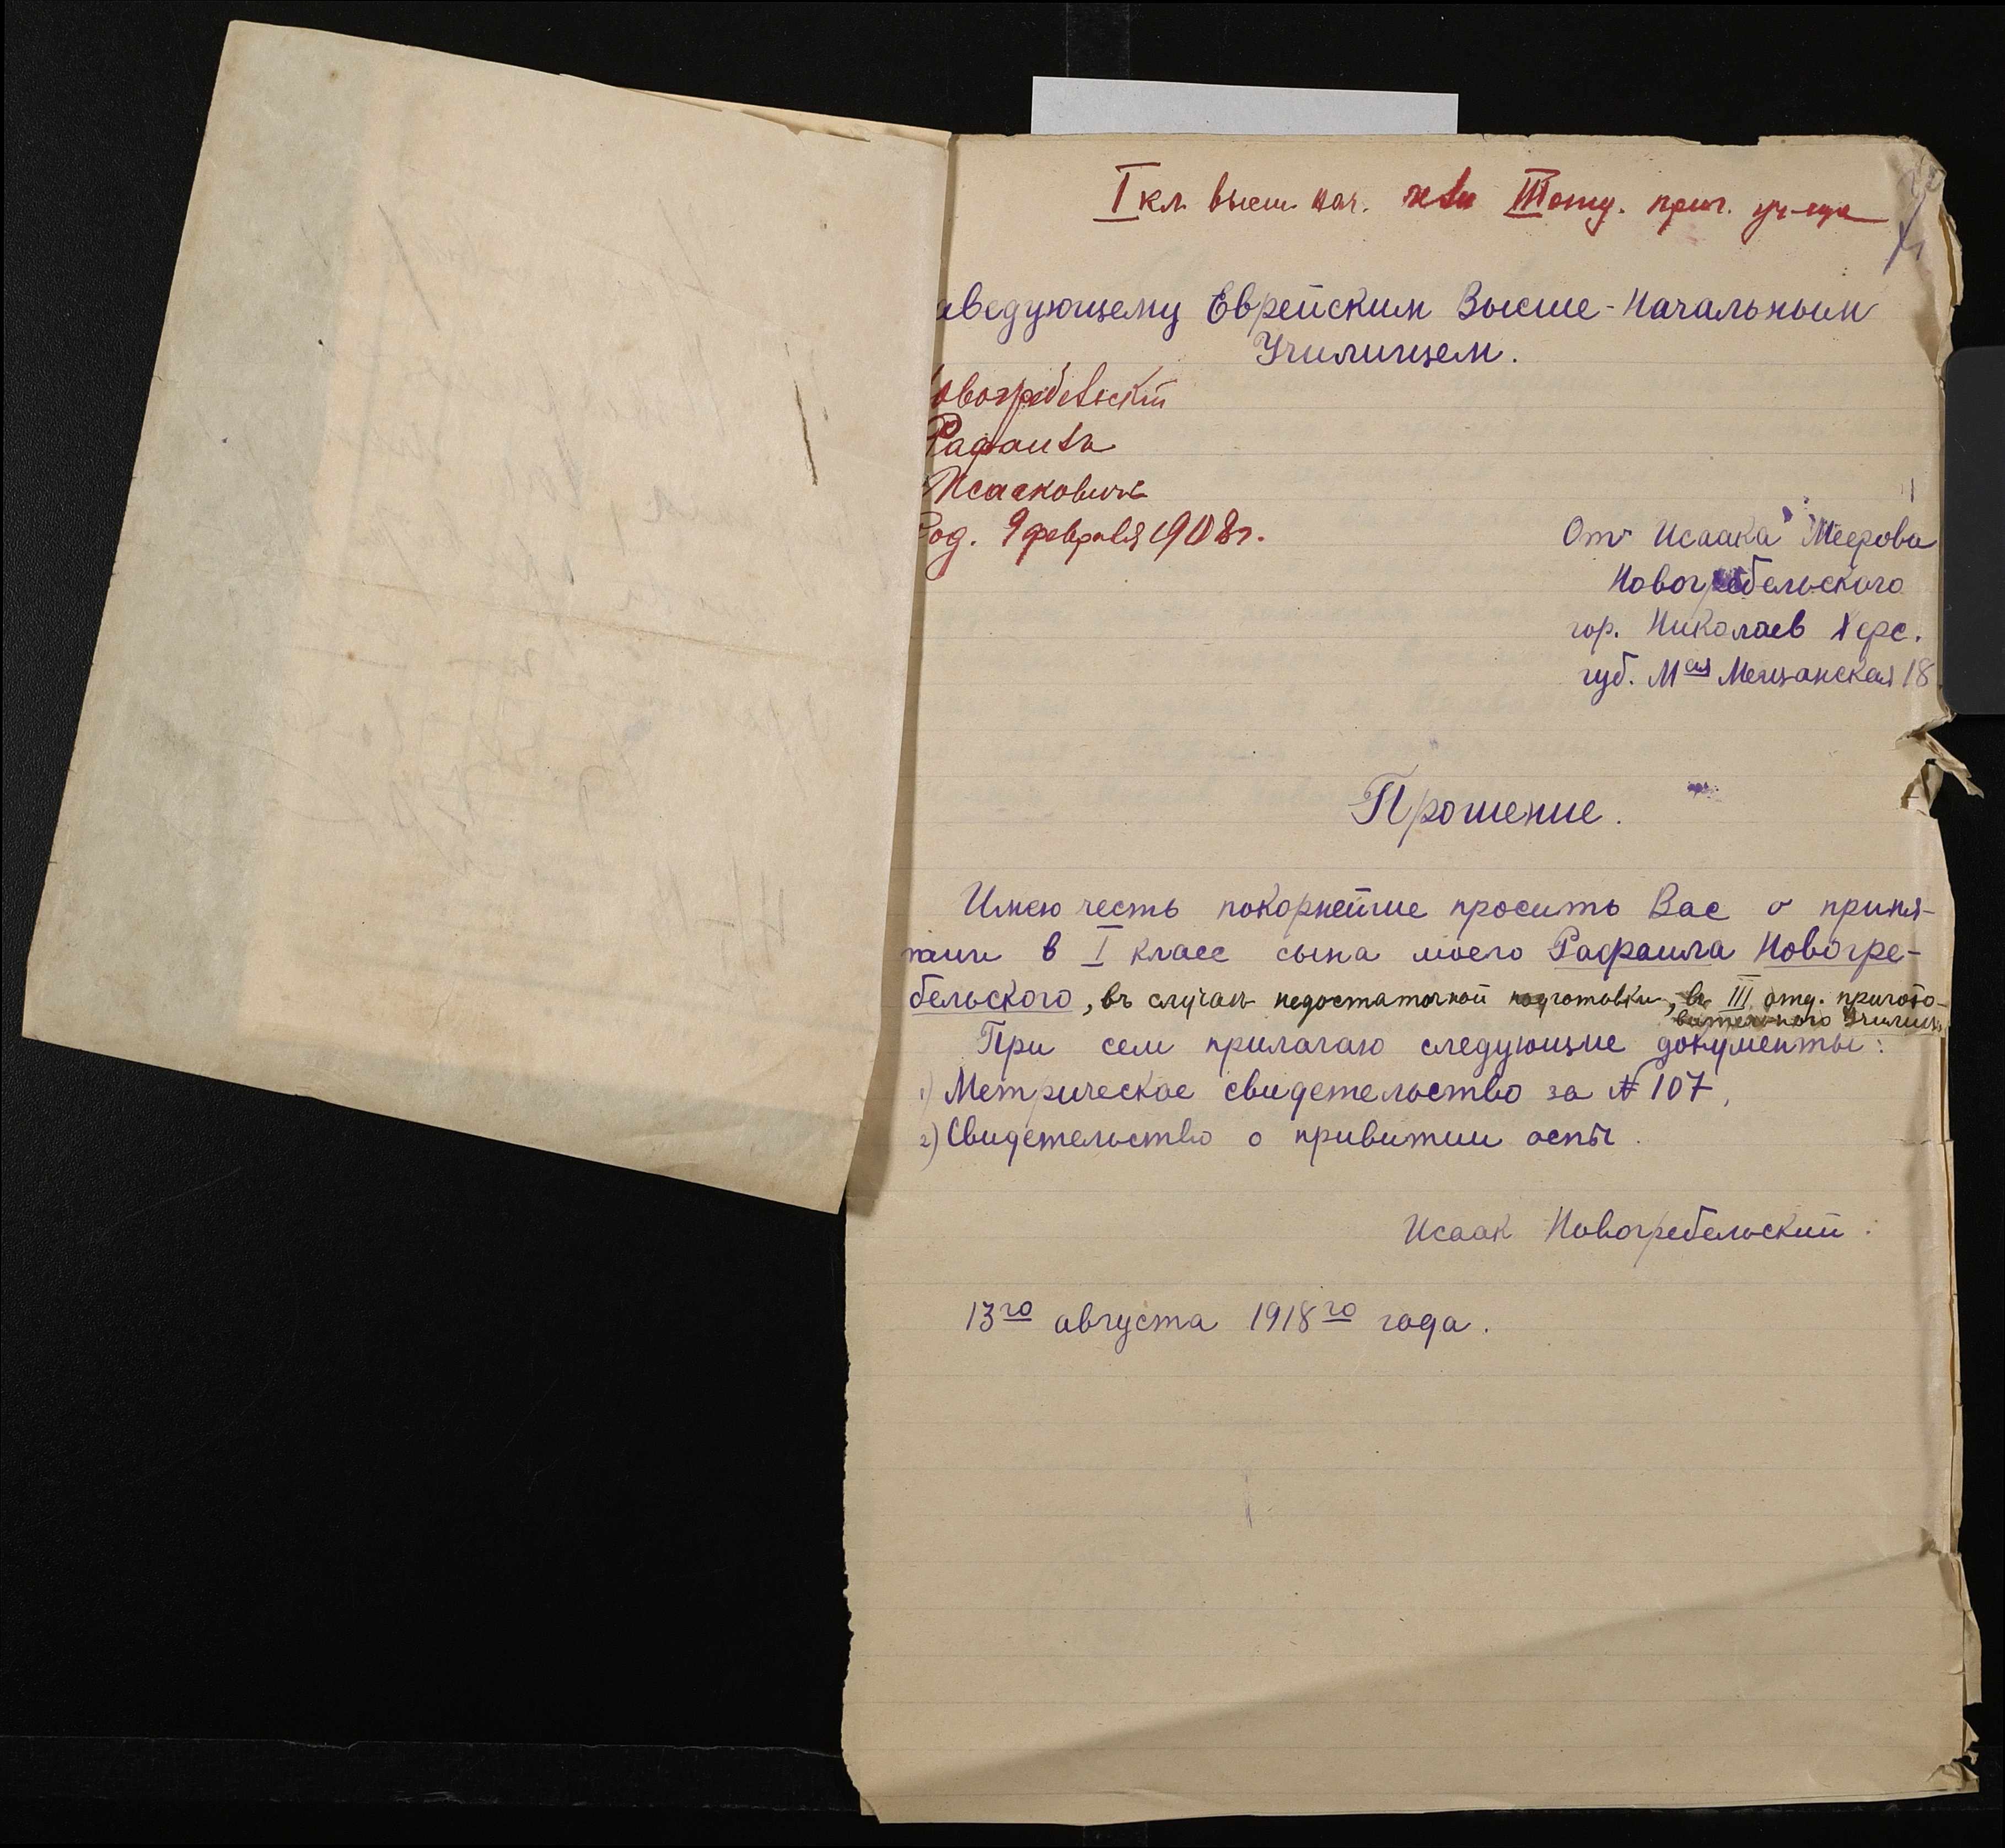 I кл. высш. нач. или III отд. приг. уч-ща
аведующему Еврейским Высше-Начальным
Училищем.
овогребельскій
Рафаилъ
Исааковичъ
Род. 9 февраля 1908 г.
От Исаака Меерова
Новогребельского
гор. Николаев Херс.
губ. Мая Мещанская 18
Прошение.
Имею честь покорнейше просить Вас о приня-
тии в I класс сына моего Рафаила Новогре-
бельского, въ случаѣ недостаточной подготовки, въ III отд. пригото-
вительного Училища
При сем прилагаю следующие документы:
1) Метрическое свидетельство за № 107,
2) Свидетельство о привитии оспы.
Исаак Новогребельский.
13го августа 1918го года.